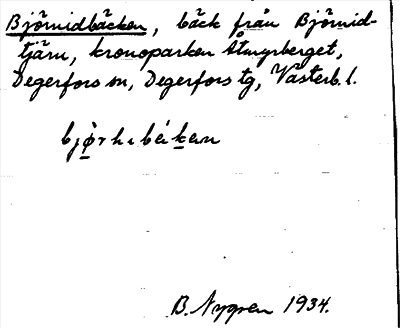 Björnidbäcken, bäck från Björnid-
tjärn, kronoparken Åmyrberget,
Degerfors sn, Degerfors tg, Västerb. l.
B. Nygren 1934.